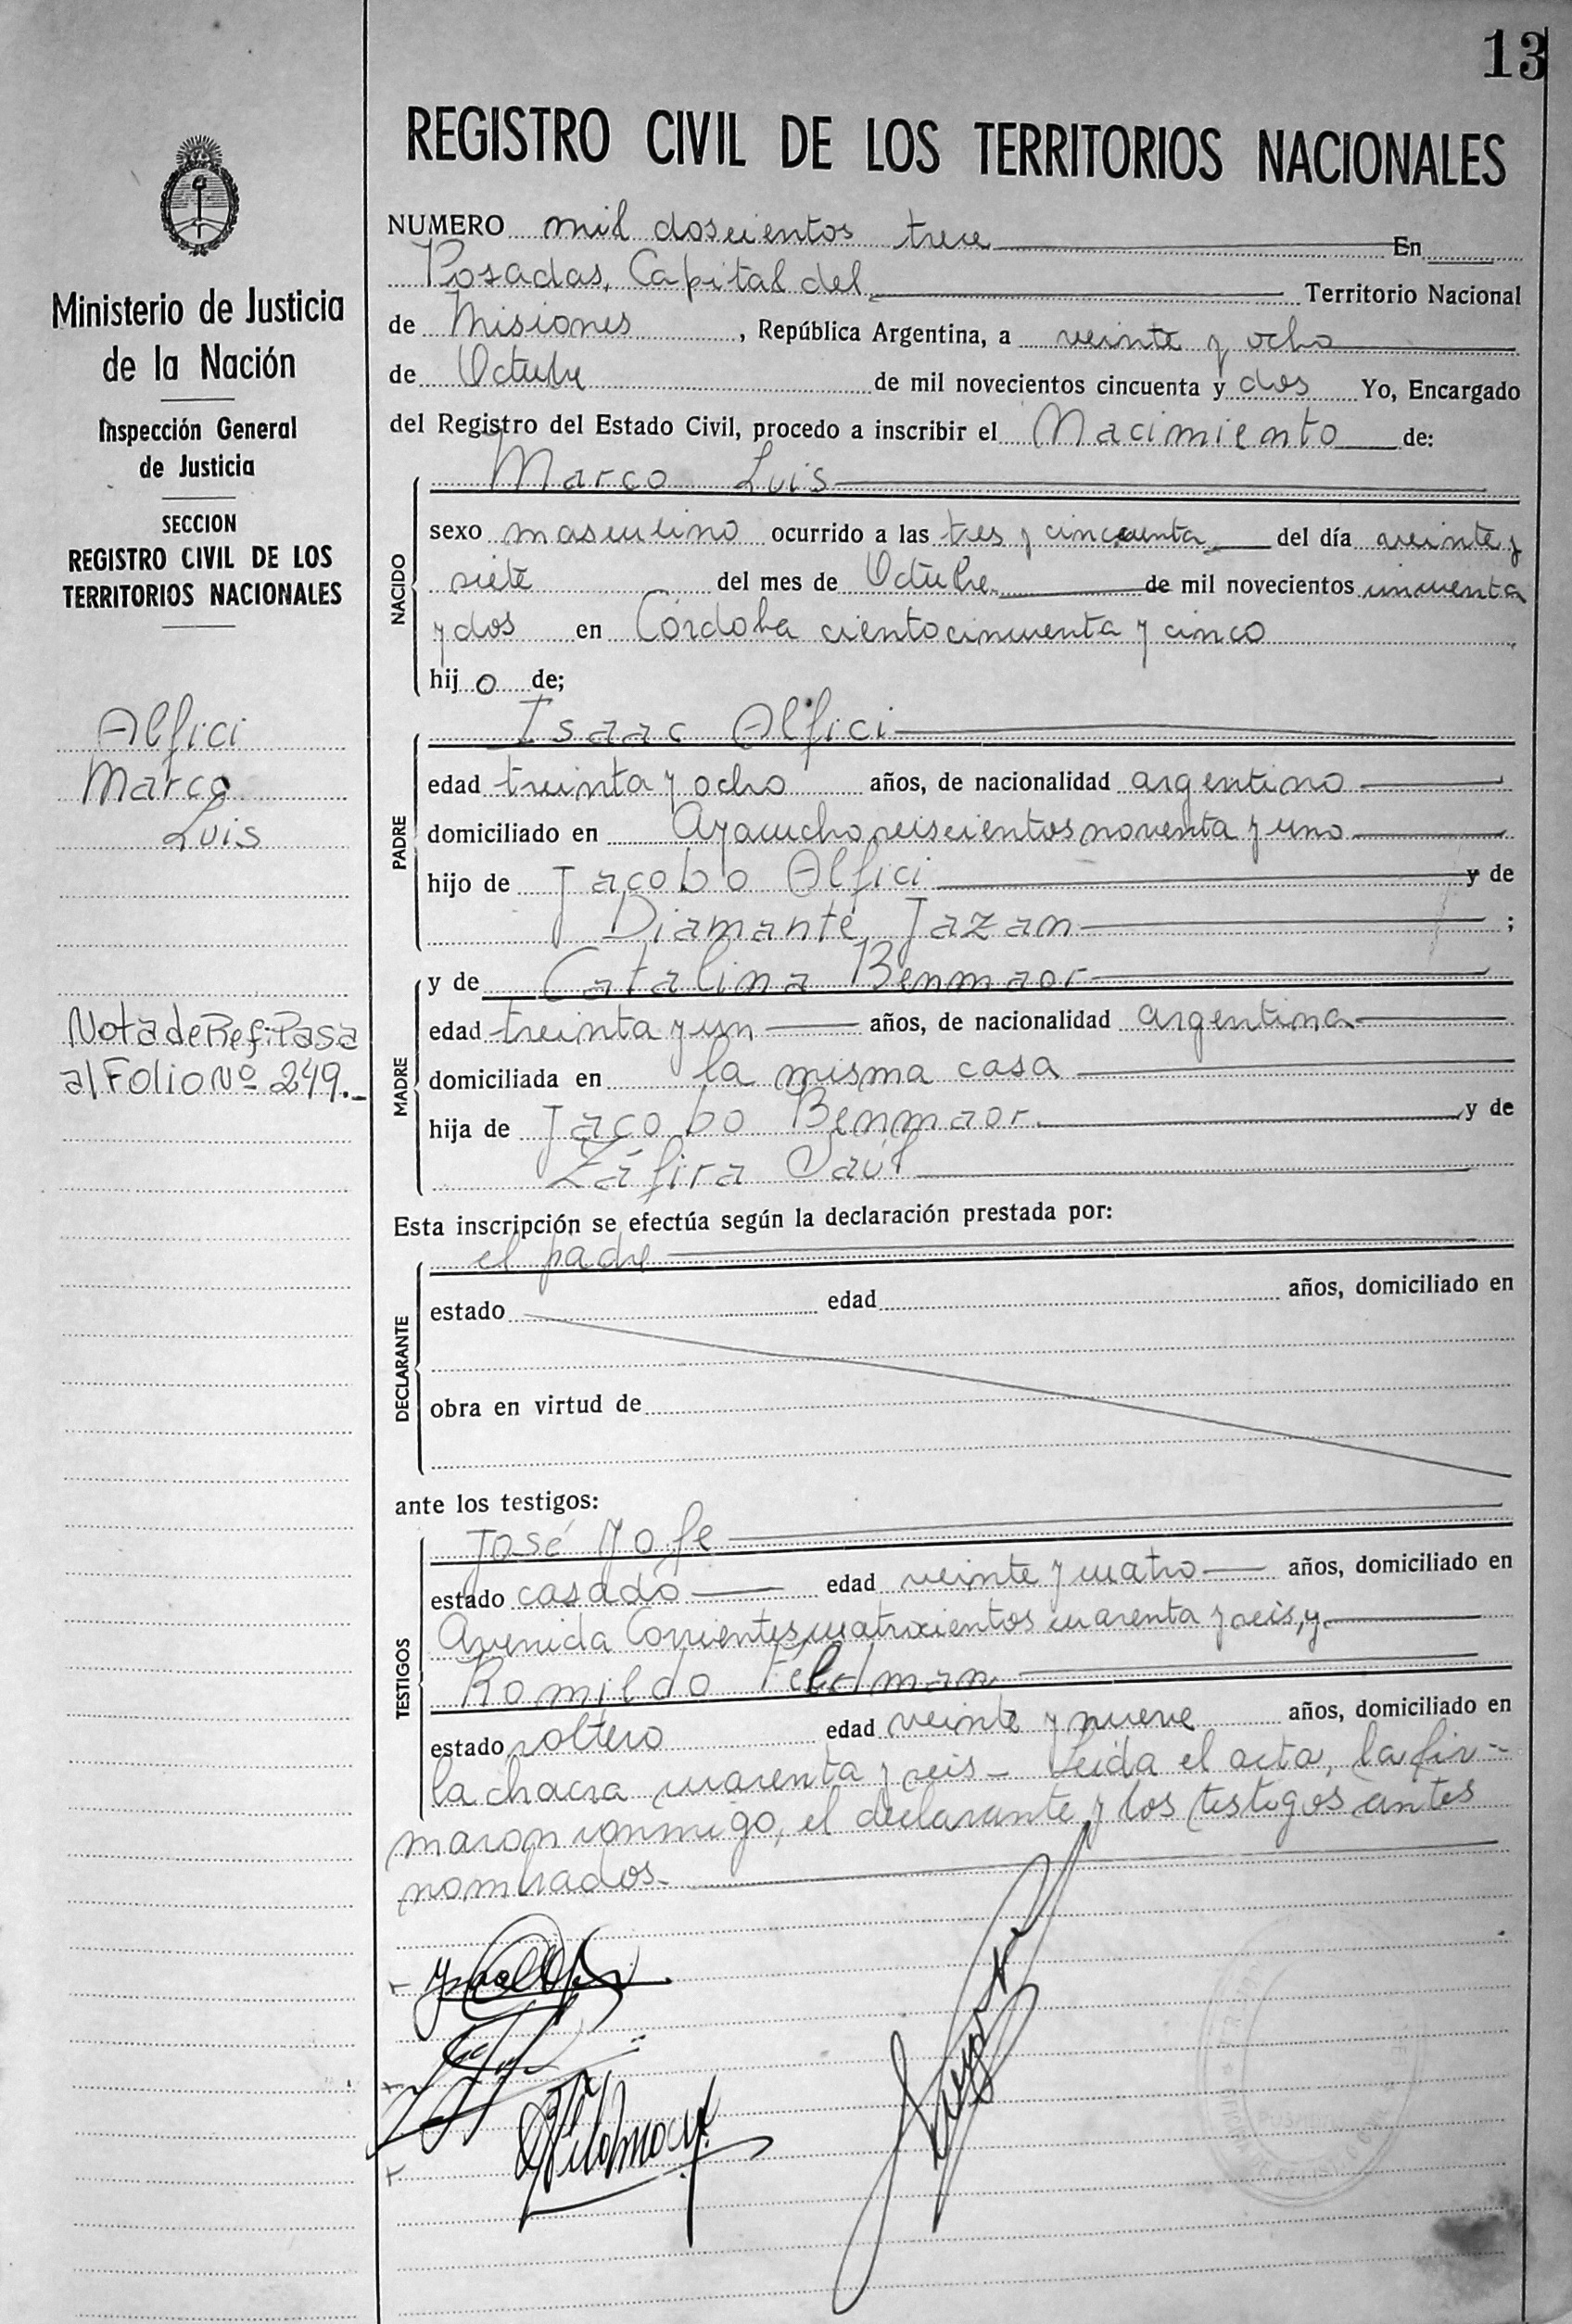 13
REGISTRO CIVIL DE LOS TERRITORIOS NACIONALES
Ministerio de Justicia
de la Nación
Inspección General
de Justicia
SECCION
REGISTRO CIVIL DE LOS
TERRITORIOS NACIONALES
Alfici
Marco
Luis
Nota de Ref: Pasa
al Folio Nº 249.-
NUMERO mil doscientos trece En
Posadas, Capital del Territorio Nacional
de Misiones, República Argentina, a veinte y ocho
de Octubre de mil novecientos cincuenta y dos Yo, Encargado
del Registro del Estado Civil, procedo a inscribir el Nacimiento de:
Marco Luis
NACIDO
sexo masculino ocurrido a las tres y cincuenta del día veinte y
siete del mes de Octubre de mil novecientos cincuenta
y dos en Córdoba ciento cincuenta y cinco
hijo de;
Isaac Alfici
PADRE
edad treinta y ocho años, de nacionalidad argentino
domiciliado en Ayacucho seiscientos noventa y uno
hijo de Jacobo Alfici y de
Diamante Jazan;
y de Catalina Benmaor
MADRE
edad treinta y un años, de nacionalidad argentina
domiciliada en la misma casa
hija de Jacobo Benmaor y de
Záfira Saúl
Esta inscripción se efectúa según la declaración prestada por:
el padre
DECLARANTE
estado edad años, domiciliado en
obra en virtud de
ante los testigos:
José Yofe
TESTIGOS
estado casado edad veinte y cuatro años, domiciliado en
Avenida Corrientes cuatrocientos cuarenta y seis, y
Romildo Feldman
estado soltero edad veinte y nueve años, domiciliado en
la chacra cuarenta y seis - Leida el acta, la fir-
maron conmigo, el declarante y los testigos antes
nombrados-